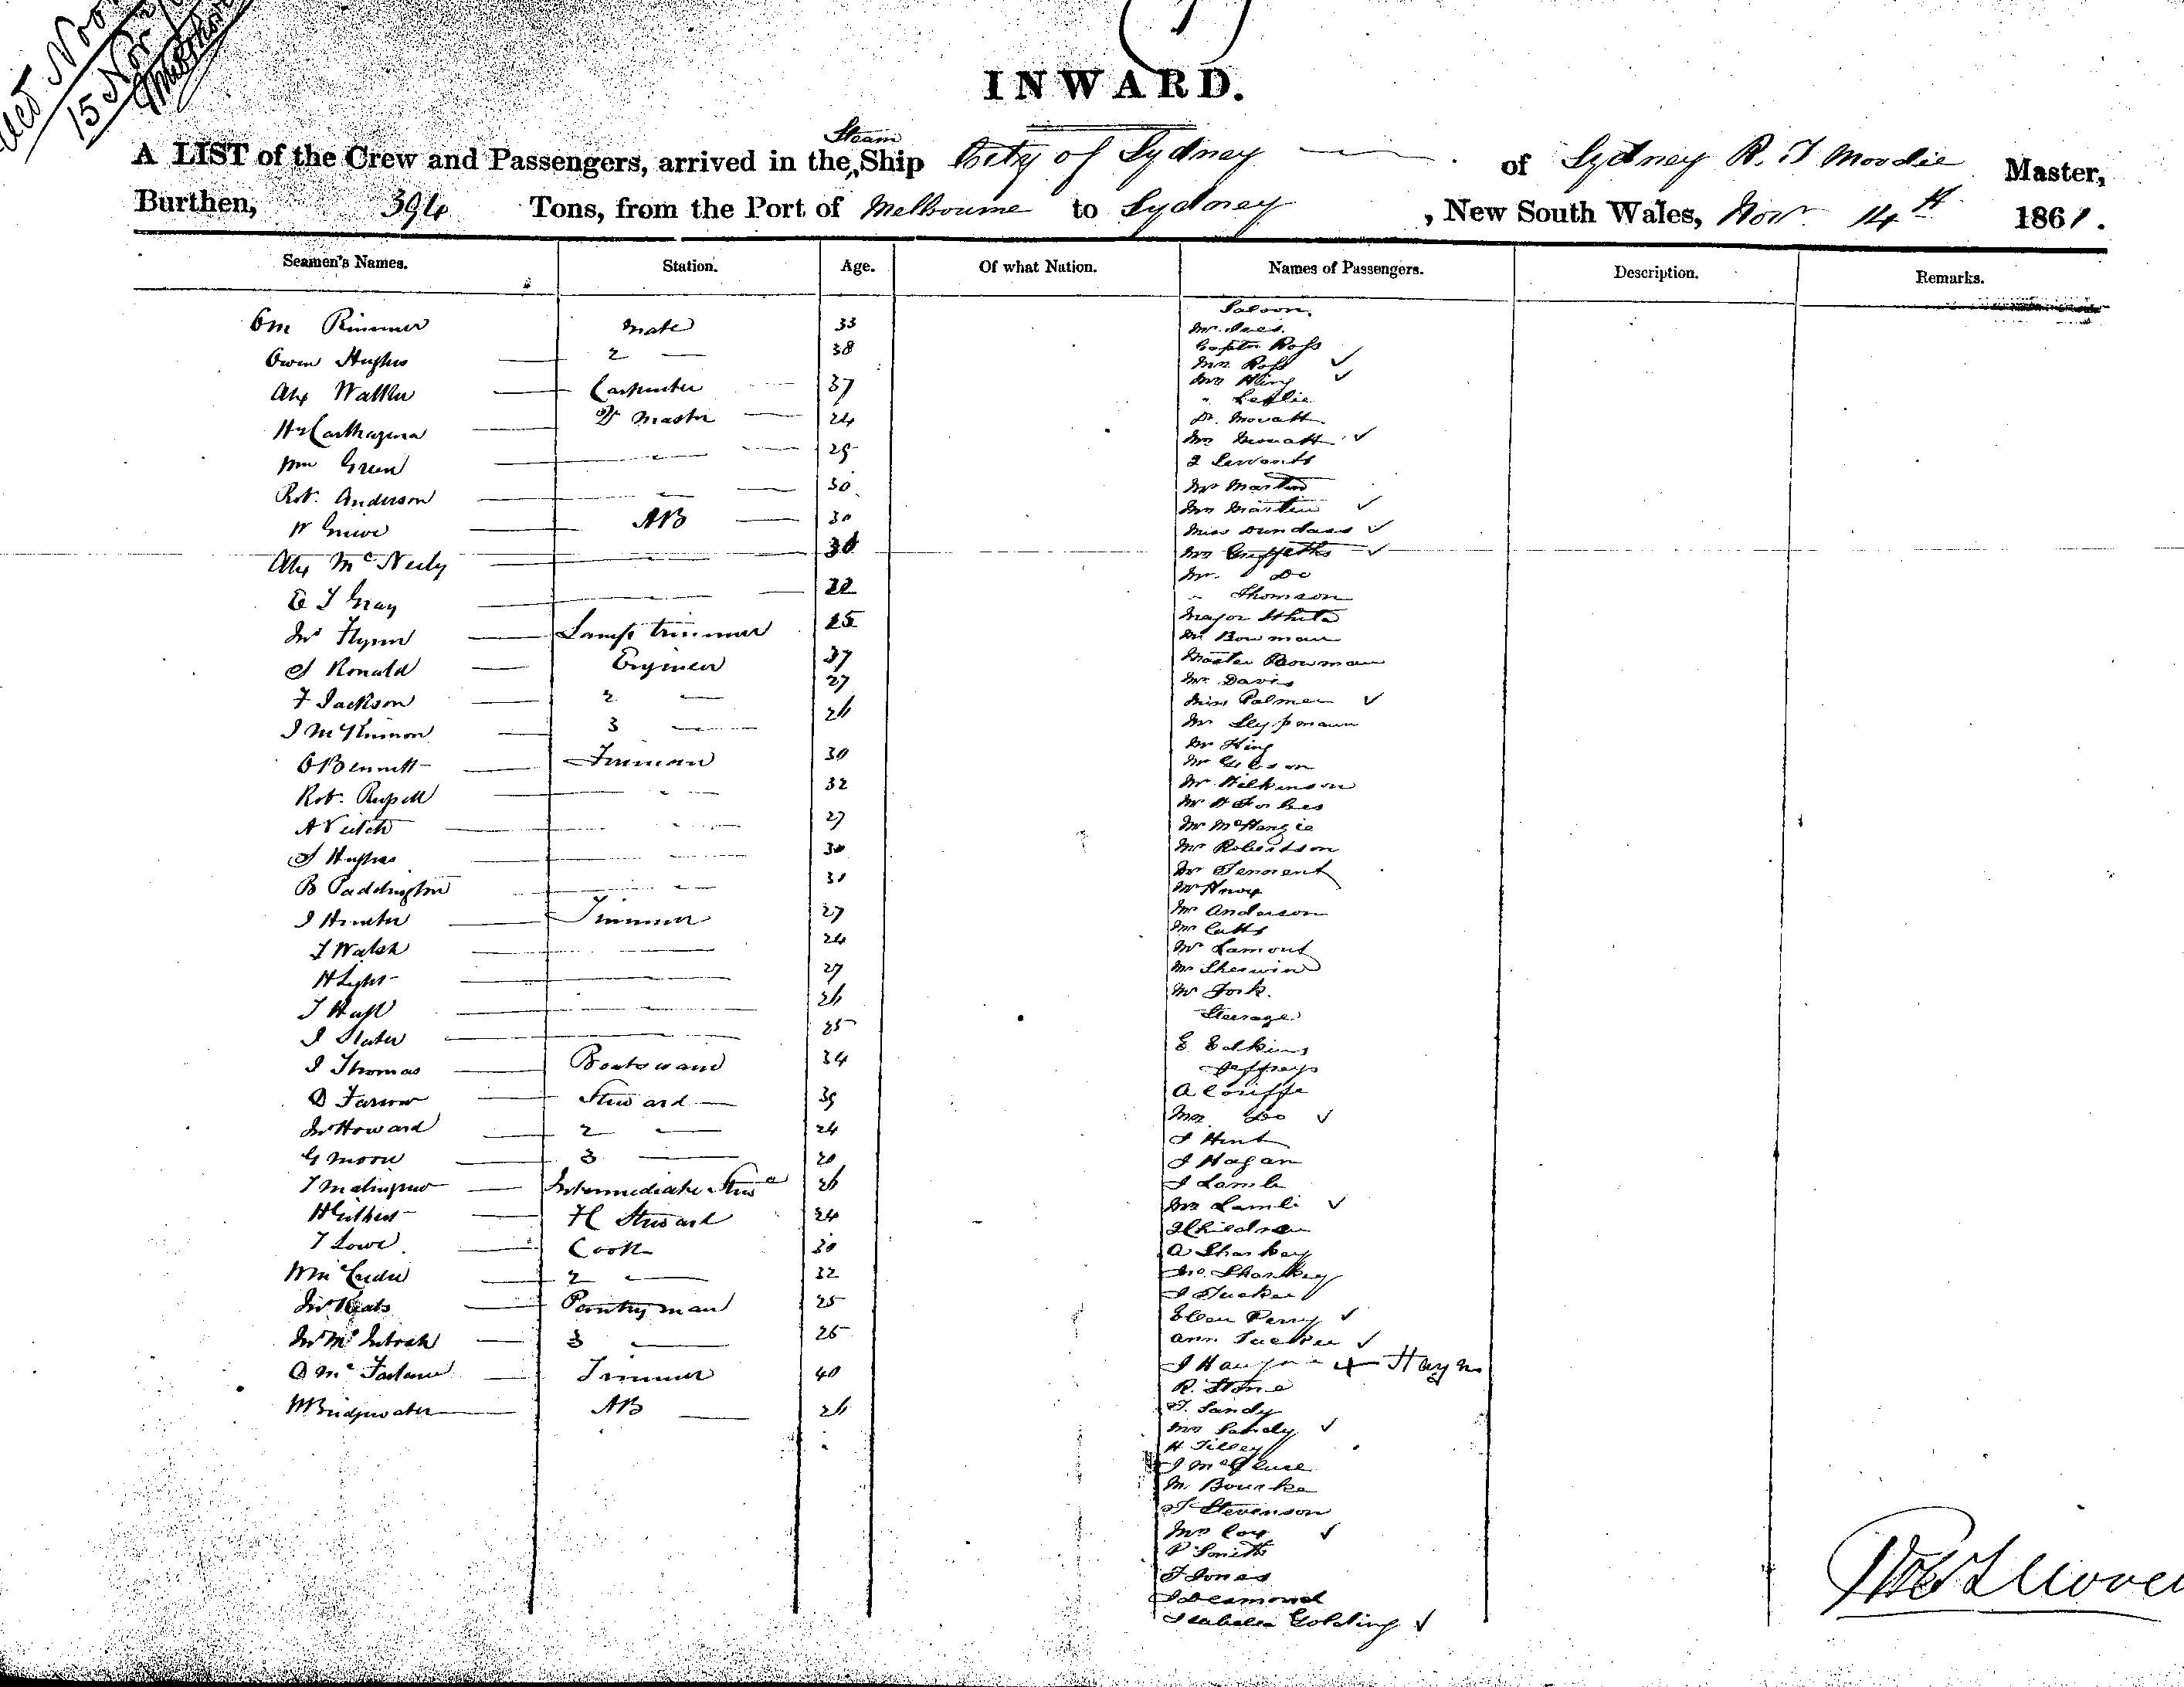 15 Nov
INWARD.
A LIST of the Crew and Passengers, arrived in the Steam Ship City of Sydney of Sydney R. T Moodie Master,
Burthen, 394 Tons, from the Port of Melbourne to Sydney, New South Wales, Nov. 14th 1861.
Seamen's Names. Station. Age. Of what Nation. Names of Passengers. Description. Remarks.
Saloon.
Rimmer Mate 33
Owen Hughes 2 — 38
Carpenter 37
Master 24
Wm Green 29
Robt. Anderson 30
W AB 30
Alex McNeily 30
E T Gray 22
Jno Flynn Lamp trimmer 25
J Ronald Engineer 37
F Jackson 2 — 27
J McKinnon 3 — 26
O Bennett Fireman 30
Robt. Russell 32
A Veitch 27
J Hughes 30
B Paddington 31
J Hunter Trimmer 27
T Walsh 24
H Light 27
T Huff 26
J Slater 25
J Thomas Boatswain 34
D Farrow Steward 39
Jno Howard 2 — 24
G Moore 3 — 20
Intermediate 26
H Gilbert H Steward 24
T Lowe Cook 30
Wm 2 — 32
Jno Keats Pantryman 25
Jno McIntosh 3 — 25
D McFarlane Trimmer 40
W Bridgwater AB 26
Captn Ross
Mrs Ross ✓
Mrs King ✓
" Leslie
Dr. Mouatt
Mrs Mouatt ✓
2 Servants
Mr Martin
Mrs Martin ✓
Miss Dundass ✓
Mrs Griffeths ✓
Mr. Do
" Thomson
Major White
Mr Bowman
Master Bowman
Mr Davis
Miss Palmer ✓
Mr
Mr King
Mr Gibson
Mr Wilkinson
Mr H Forbes
Mr McKenzie
Mr Robertson
Mr Tennent
Mr Knox
Mr Anderson
Mr Catts
Mr Lamont
Mr Sherwin
Mr York.
Steerage
E
Jeffreys
A Couiffe
Mrs Do ✓
J Hunt
J Hagan
J Lamb
Mrs Lamb ✓
2 Children
A Sharkey
Mrs. Sharkey
J Tucker
Ellen Perry ✓
Ann Tucker ✓
J
R. Stone
T. Sandy
Mrs Sandy ✓
H Tilley
J McClure
M. Bourke
T Stevenson
Mrs Cox ✓
P Smith
T Jones
J Desmond
Isabella Golding ✓